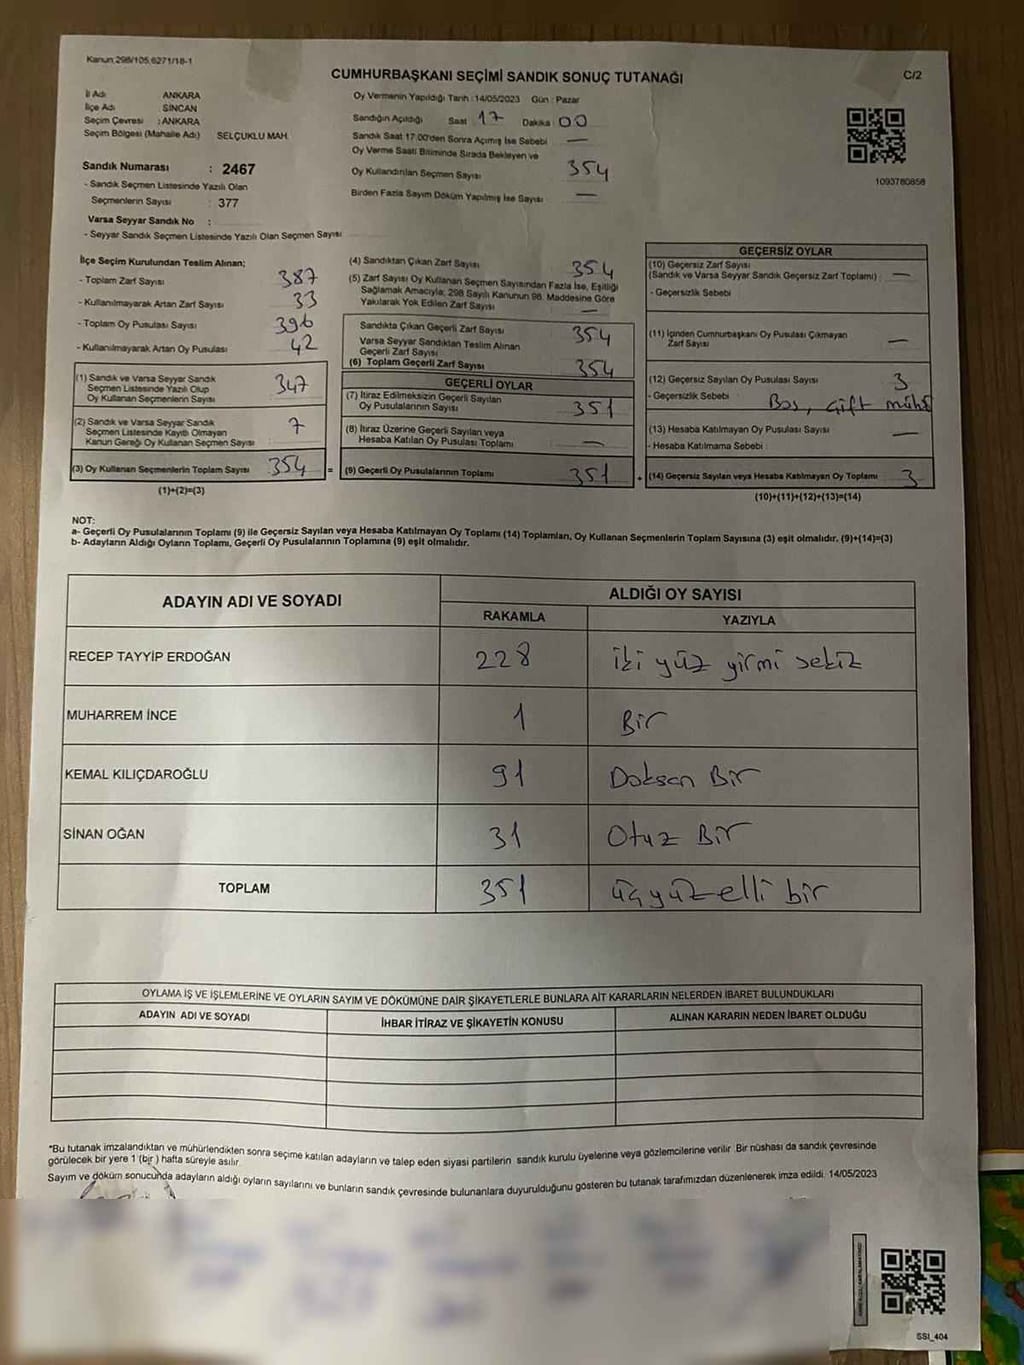 Kanun:298/105,6271/18-1
CUMHURBAŞKANI SEÇİMİ SANDIK SONUÇ TUTANAĞI
C/2
İl Adı ANKARA
İlçe Adı SİNCAN
Seçim Çevresi : ANKARA
Seçim Bölgesi (Mahalle Adı) SELÇUKLU MAH.
Sandık Numarası : 2467
- Sandık Seçmen Listesinde Yazılı Olan
Seçmenlerin Sayısı : 377
Varsa Seyyar Sandık No :
- Seyyar Sandık Seçmen Listesinde Yazılı Olan Seçmen Sayısı
Oy Vermenin Yapıldığı Tarih : 14/05/2023 Gün : Pazar
Sandığın Açıldığı Saat 17 Dakika 00
Sandık Saat 17:00'den Sonra Açımış İse Sebebi —
Oy Verme Saati Bitiminde Sırada Bekleyen ve
Oy Kullandırılan Seçmen Sayısı 354
Birden Fazla Sayım Döküm Yapılmış İse Sayısı —
1093780858
İlçe Seçim Kurulundan Teslim Alınan;
- Toplam Zarf Sayısı 387
- Kullanılmayarak Artan Zarf Sayısı 33
- Toplam Oy Pusulası Sayısı 396
- Kullanılmayarak Artan Oy Pusulası 42
(1) Sandık ve Varsa Seyyar Sandık
Seçmen Listesinde Yazılı Olup
Oy Kullanan Seçmenlerin Sayısı 347
(2) Sandık ve Varsa Seyyar Sandık
Seçmen Listesinde Kayıtlı Olmayan
Kanun Gereği Oy Kullanan Seçmen Sayısı 7
(3) Oy Kullanan Seçmenlerin Toplam Sayısı 354 =
(1)+(2)=(3)
(4) Sandıktan Çıkan Zarf Sayısı 354
(5) Zarf Sayısı Oy Kullanan Seçmen Sayısından Fazla İse, Eşitliği
Sağlamak Amacıyla; 298 Sayılı Kanunun 98. Maddesine Göre
Yakılarak Yok Edilen Zarf Sayısı —
Sandıkta Çıkan Geçerli Zarf Sayısı 354
Varsa Seyyar Sandıktan Teslim Alınan
Geçerli Zarf Sayısı
(6) Toplam Geçerli Zarf Sayısı 354
GEÇERLİ OYLAR
(7) İtiraz Edilmeksizin Geçerli Sayılan
Oy Pusulalarının Sayısı 351
(8) İtiraz Üzerine Geçerli Sayılan veya
Hesaba Katılan Oy Pusulası Toplamı —
(9) Geçerli Oy Pusulalarının Toplamı 351 +
GEÇERSİZ OYLAR
(10) Geçersiz Zarf Sayısı
(Sandık ve Varsa Seyyar Sandık Geçersiz Zarf Toplamı) —
- Geçersizlik Sebebi
(11) İçinden Cumhurbaşkanı Oy Pusulası Çıkmayan
Zarf Sayısı —
(12) Geçersiz Sayılan Oy Pusulası Sayısı 3
- Geçersizlik Sebebi Boş, Çift mühür
(13) Hesaba Katılmayan Oy Pusulası Sayısı —
- Hesaba Katılmama Sebebi :
(14) Geçersiz Sayılan veya Hesaba Katılmayan Oy Toplamı 3
(10)+(11)+(12)+(13)=(14)
NOT:
a- Geçerli Oy Pusulalarının Toplamı (9) ile Geçersiz Sayılan veya Hesaba Katılmayan Oy Toplamı (14) Toplamları, Oy Kullanan Seçmenlerin Toplam Sayısına (3) eşit olmalıdır. (9)+(14)=(3)
b- Adayların Aldığı Oyların Toplamı, Geçerli Oy Pusulalarının Toplamına (9) eşit olmalıdır.
ADAYIN ADI VE SOYADI ALDIĞI OY SAYISI
RAKAMLA YAZIYLA
RECEP TAYYİP ERDOĞAN 228 iki yüz yirmi sekiz
MUHARREM İNCE 1 Bir
KEMAL KILIÇDAROĞLU 91 Doksan Bir
SİNAN OĞAN 31 Otuz Bir
TOPLAM 351 üçyüz elli bir
OYLAMA İŞ VE İŞLEMLERİNE VE OYLARIN SAYIM VE DÖKÜMÜNE DAİR ŞİKAYETLERLE BUNLARA AİT KARARLARIN NELERDEN İBARET BULUNDUKLARI
ADAYIN ADI VE SOYADI İHBAR İTİRAZ VE ŞİKAYETİN KONUSU ALINAN KARARIN NEDEN İBARET OLDUĞU
*Bu tutanak imzalandıktan ve mühürlendikten sonra seçime katılan adayların ve talep eden siyasi partilerin sandık kurulu üyelerine veya gözlemcilerine verilir. Bir nüshası da sandık çevresinde
görülecek bir yere 1 (bir) hafta süreyle asılır.
Sayım ve döküm sonucunda adayların aldığı oyların sayılarını ve bunların sandık çevresinde bulunanlara duyurulduğunu gösteren bu tutanak tarafımızdan düzenlenerek imza edildi. 14/05/2023
SSI_404